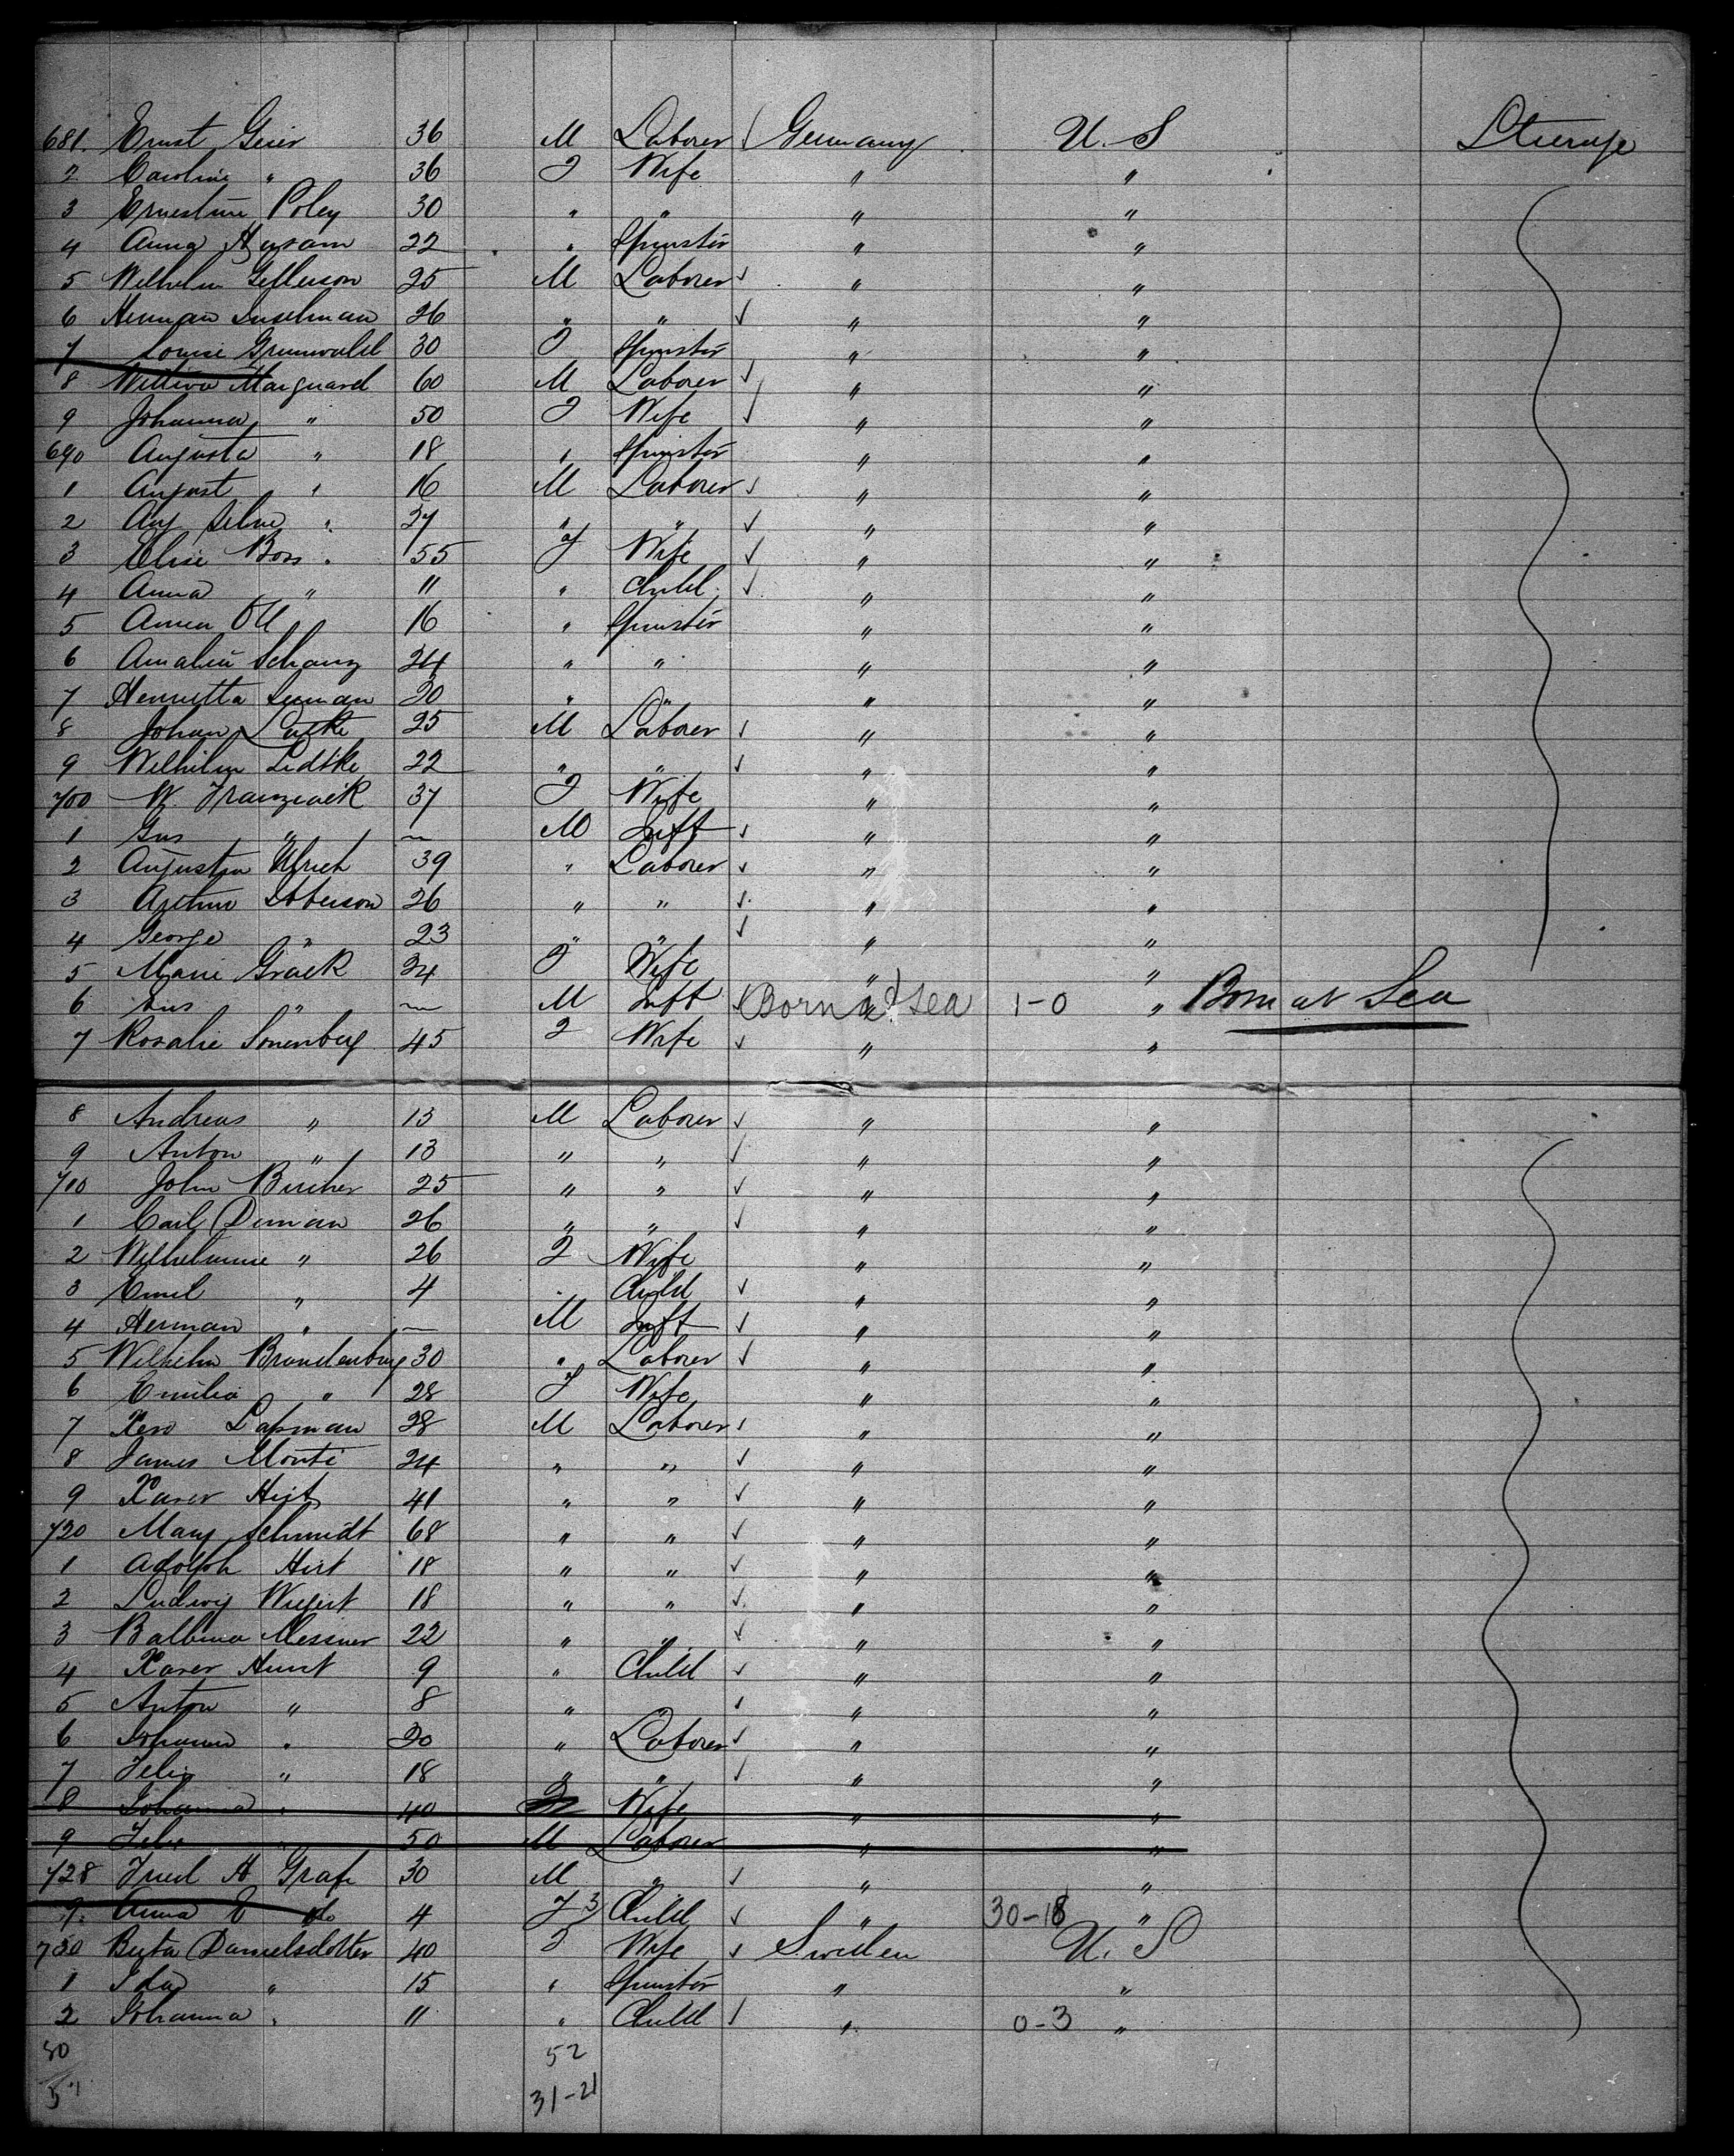 681. Ernst Geier 36 M Laborer √ Germany U. S Steerage
2 Caroline " 36 F Wife " "
3 Ernestine Poley 30 " " " "
4 Anna 22 " Spinster " "
5 Wilhelm 25 M Laborer √ " "
6 Herman Inselman 26 " " √ " "
7 Louise Grunwald 30 F Spinster " "
8 Marquard 60 M Laborer √ " "
9 Johanna " 50 F Wife √ " "
690 Augusta " 18 " Spinster " "
1 August " 16 M Laborer √ " "
2 Aug " 27 " " √ " "
3 Elise Bors " 55 F Wife √ " "
4 Anna " 11 " Child √ " "
5 Anna Ott 16 " Spinster " "
6 Amalia Schanz 24 " " " "
7 Henrietta 20 " " " "
8 Johan 25 M Laborer √ " "
9 Wilhelm Ledtke 22 " " √ " "
700 W. 37 F Wife " "
1 Gus " ~ M Inft √ " "
2 Ulrich 39 " Laborer √ " "
3 26 " " √ " "
4 George " 23 " " √ " "
5 Marie Graek 24 F Wife " "
6 Gus " ~ M Inft √ Born at Sea 1-0 " Born at Sea
7 Rosalie Sonenberg 45 F Wife √ " "
8 Andreas " 13 M Laborer √ " "
9 Anton " 13 " " √ " "
710 John Bircher 25 " " √ " "
1 Carl Dumian 26 " " √ " "
2 Wilhelmine " 26 F Wife " "
3 Emil " 4 " Child √ " "
4 Herman " ~ M Inft √ " "
5 Wilhelm Brandenburg 30 " Laborer √ " "
6 Emilia " 28 F Wife " "
7 Lapman 28 M Laborer √ " "
8 James Monti 24 " " √ " "
9 Xaver Hirt 41 " " √ " "
720 Mary Schmidt 68 " " √ " "
1 Adolph Hirt 18 " " √ " "
2 Ludwig 18 " " √ " "
3 Balbina Messner 22 " " √ " "
4 Xaver Hunt 9 " Child √ " "
5 Anton " 8 " " √ " "
6 Johann " 20 " Laborer √ " "
7 Felix " 18 " " √ " "
8 Johanna " 40 Wife " "
9 50 M Laborer " "
728 Fried A Graf 30 M " √ " "
9. Anna E do 4 F 3 Child √ " 30-18 "
730 Danielsdotter 40 F Wife √ Sweden U. S
1 Ida " 15 " Spinster " "
2 Johanna " 11 " Child √ " 0-3 "
50 52
31-21